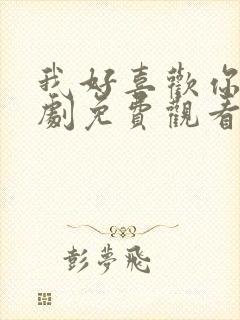 我好喜歡你
劇免費觀看
彭夢飛